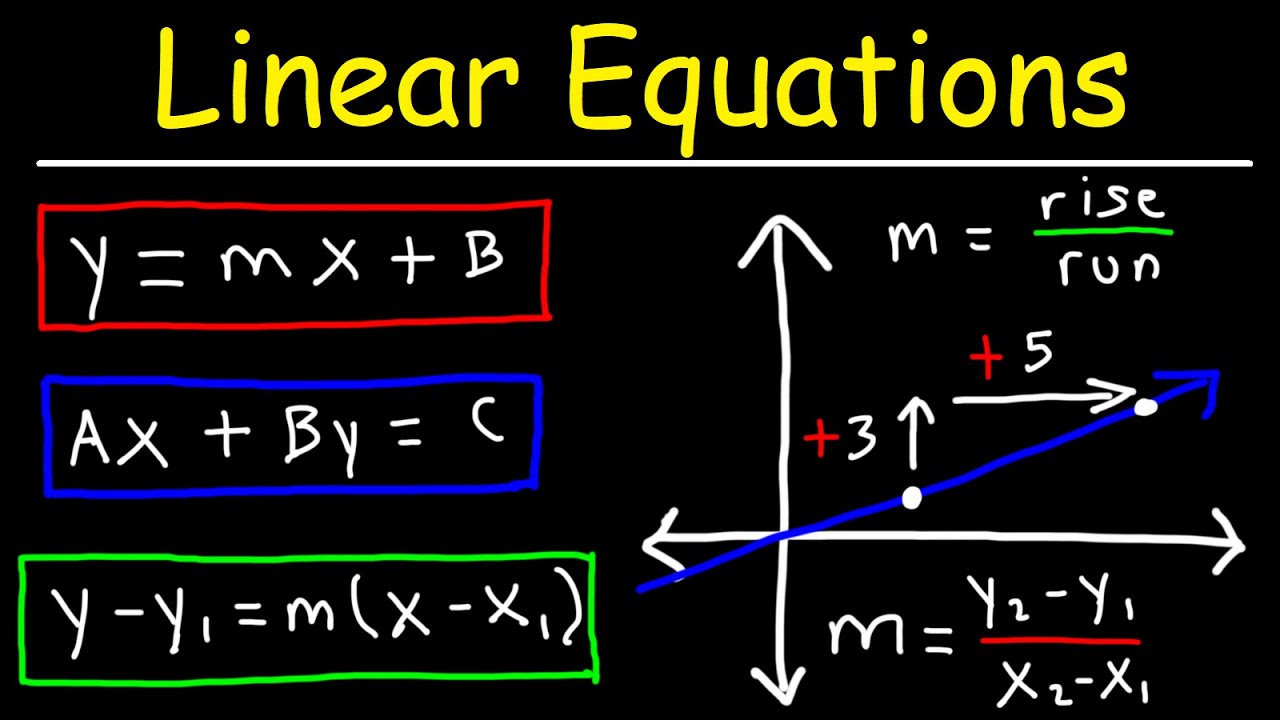 Linear Equations
y = mx + B
Ax + By = C
y - y₁ = m(x - x₁)
m = rise/run
+ 5
+3
m = y₂ - y₁ / x₂ - x₁